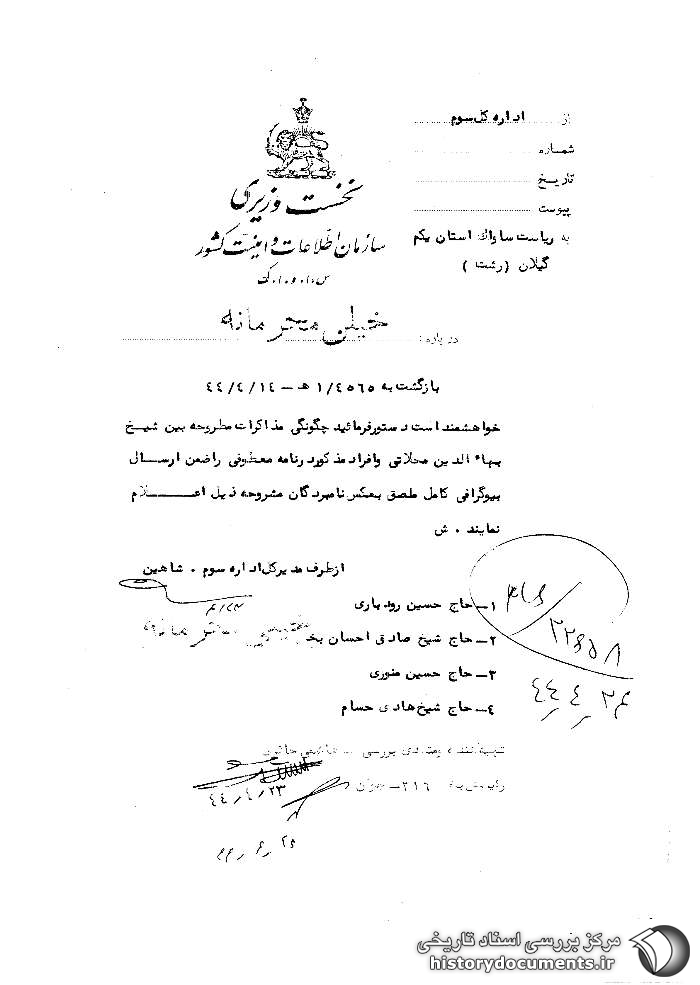 از اداره کل سوم
شماره
تاریخ
پیوست
به ریاست ساواک استان یکم
گیلان (رشت)
نخست وزیری
سازمان اطلاعات و امنیت کشور
س.ا.و.ا.ک
خیلی محرمانه
درباره:
بازگشت به ۱/٤٥٦٥ هـ – ٤٤/٤/۱٤
خواهشمند است دستور فرمائید چگونگی مذاکرات مطروحه بین شیخ
بهاء الدین محلاتی وافراد مذکور در نامه معطوفی را ضمن ارسال
بیوگرافی کامل ملصق بعکس نامبردگان مشروحه ذیل اعلام
نمایند . ش
از طرف مدیرکل اداره سوم . شاهین
۱– حاج حسین رودباری
۲– حاج شیخ صادق احسان بخ
خیلی محرمانه
۳– حاج حسین منوری
٤– حاج شیخ هادی حسام
۲۲۶۵۸
۴۴٫۴٫۲۴
تهیه کننده
بررسی
۲۱٦
٤٤/٤/۲۳
مرکز بررسی اسناد تاریخی
historydocuments.ir